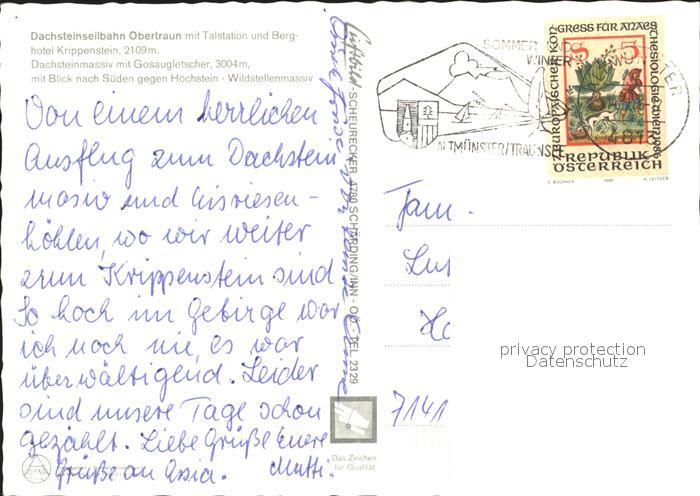 Dachsteinseilbahn Obertraun mit Talstation und Berg-
hotel Krippenstein, 2109m.
Dachsteinmassiv mit Gosaugletscher, 3004m,
mit Blick nach Süden gegen Höchstein · Wildstellenmassiv
Von einem herrlichen
Ausflug zum Dachstein
masiv und Eisriesen-
höhlen, wo wir weiter
zum Krippenstein sind
So hoch im Gebirge war
ich noch nie, es war
überwältigend. Leider
sind unsere Tage schon
gezählt. Liebe Grüße Euere
Grüße an Mutti.
Luftbild-SCHEURECKER 4780 SCHÄRDING/INN - OÖ - TEL. 2329
Das Zeichen
für Qualität
SOMMER UND
WINTER
ALTMÜNSTER/TRAUNSEE
7. EUROPÄISCHER KONGRESS FÜR ANAESTHESIOLOGIE WIEN 1986
S 5
REPUBLIK
ÖSTERREICH
Fam.
7141
privacy protection
Datenschutz